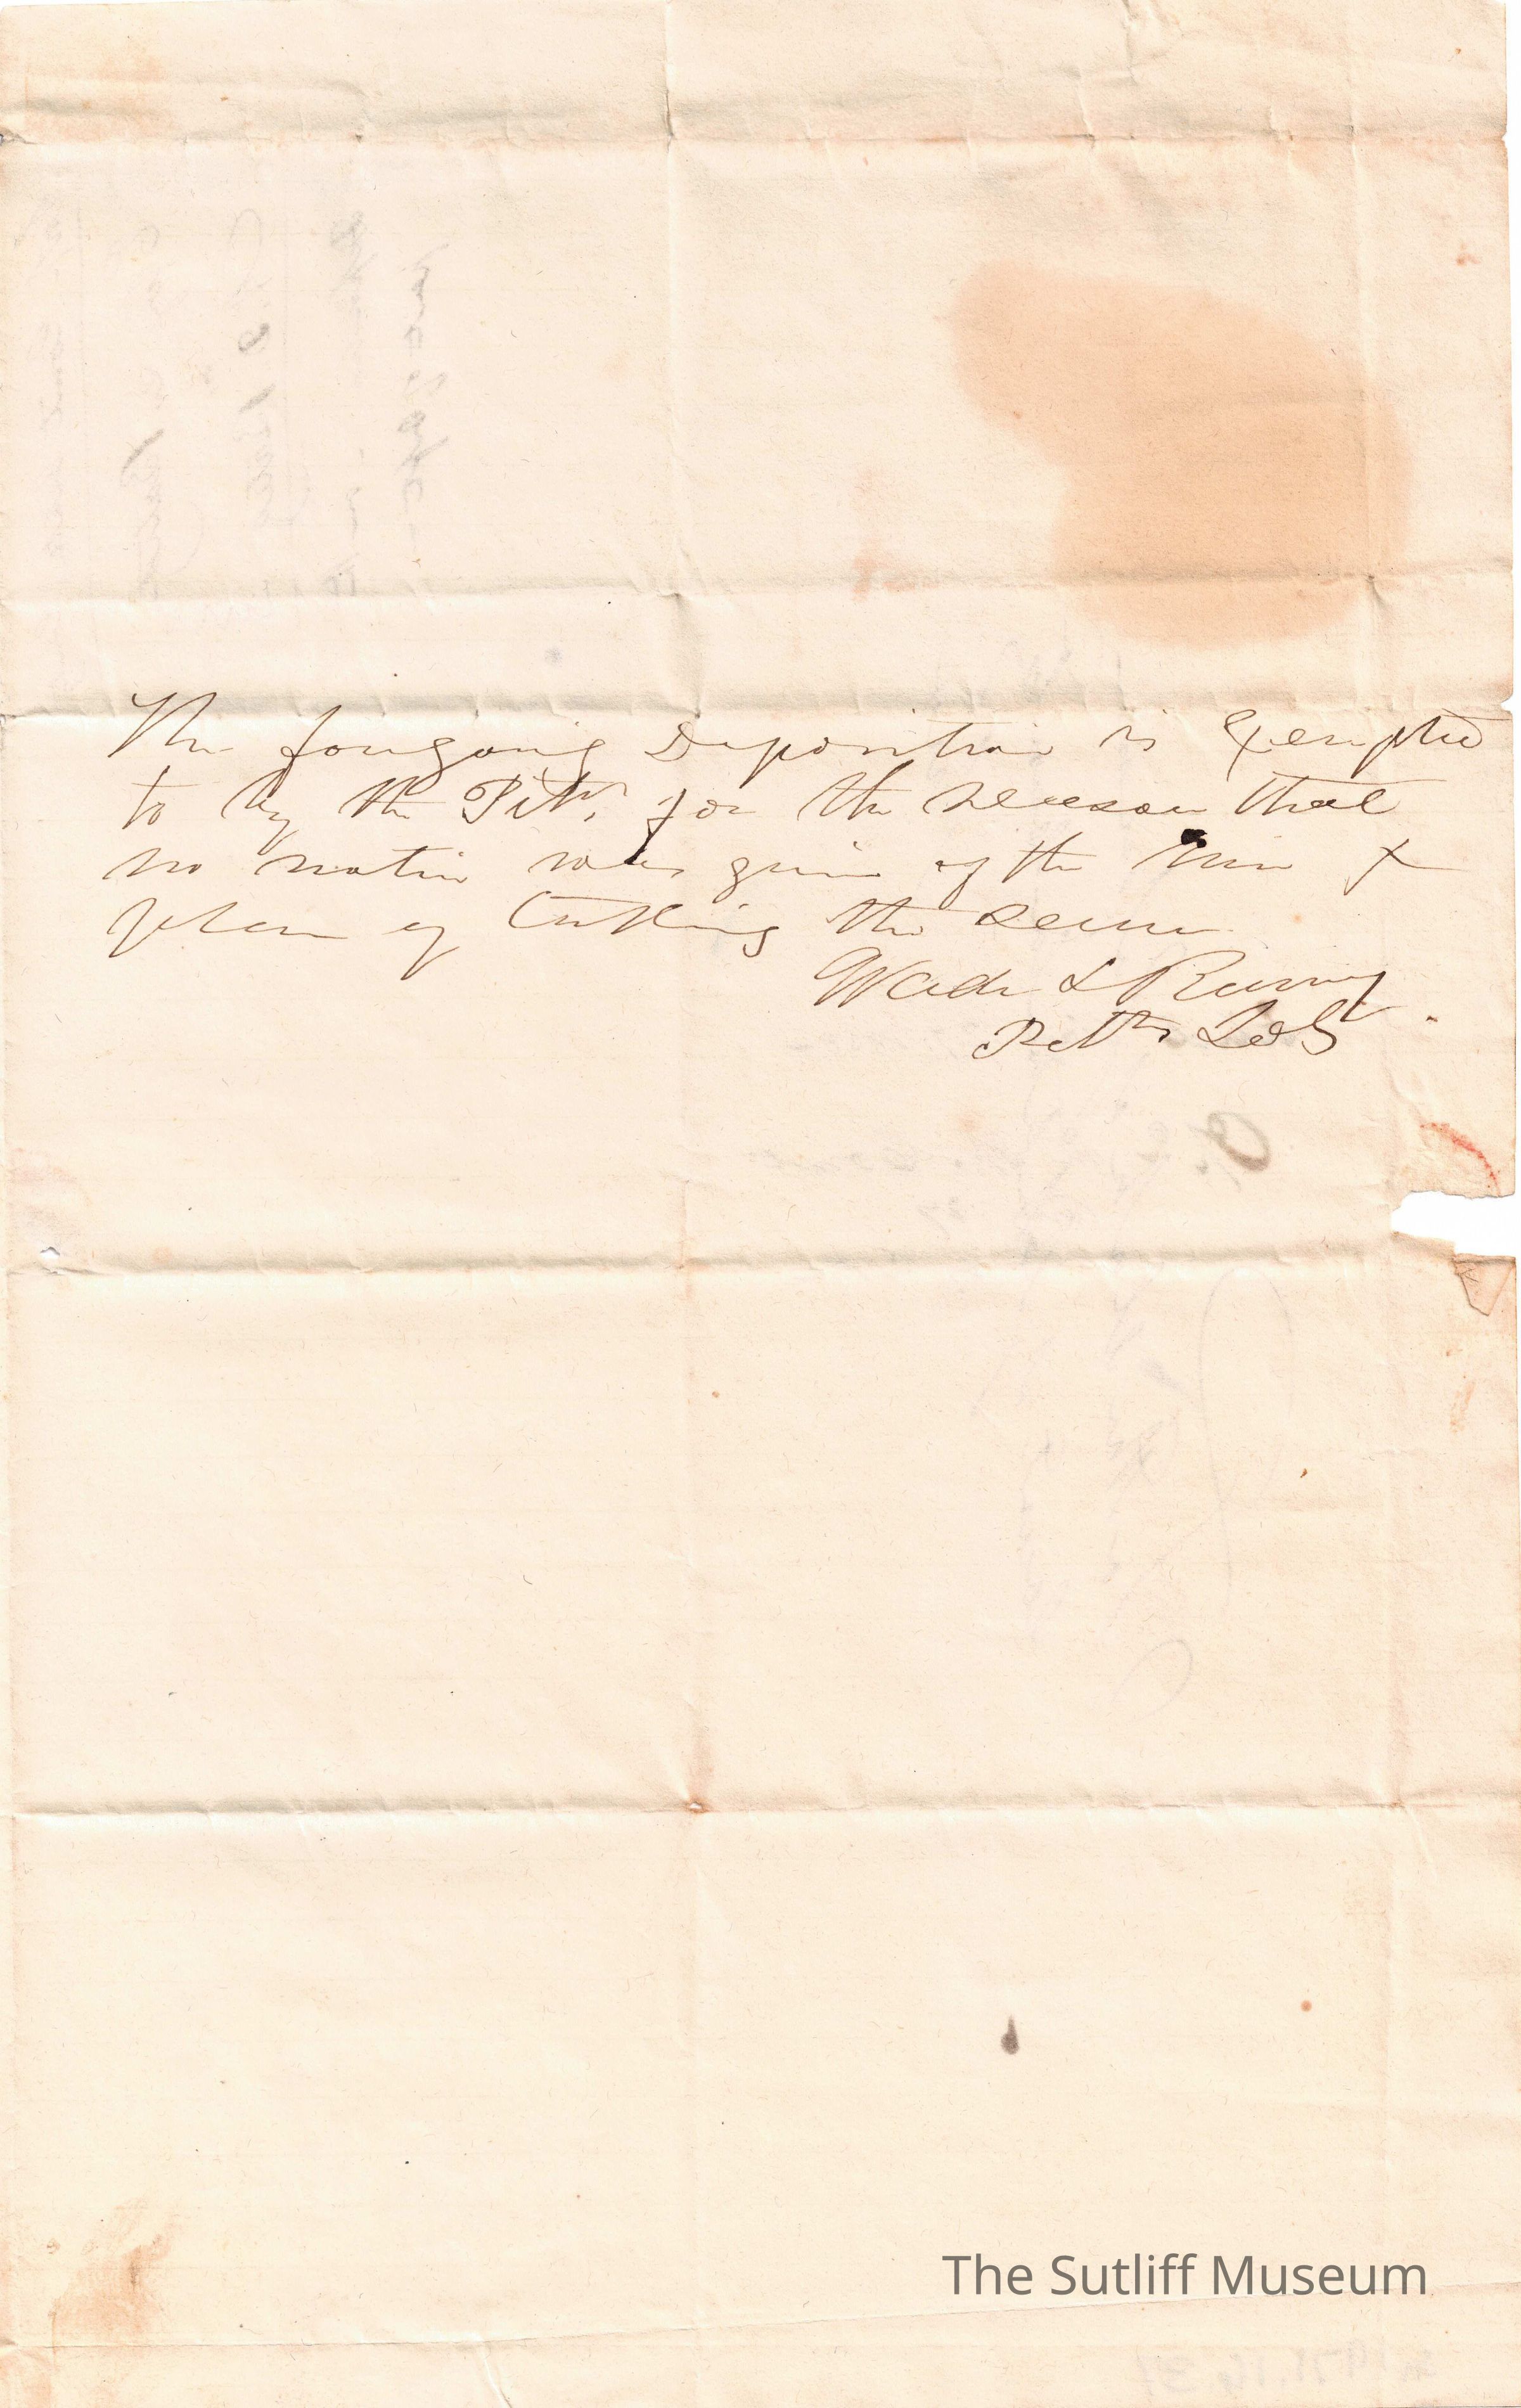 The foregoing Deposition is Excepted
to by the Petrs for the reason that
no notice was given of the time &
place of taking the same
Wade & Ranney
Petrs Sols
The Sutliff Museum